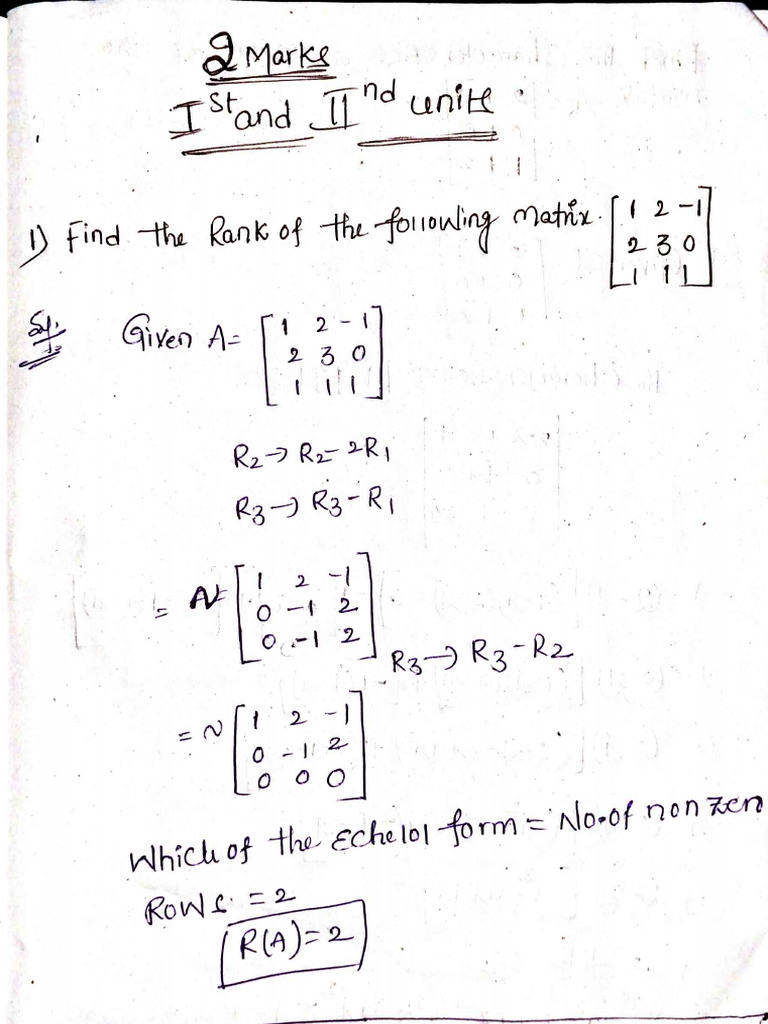 2 Marks
Ist and IInd units
1) Find the Rank of the following matrix. [1 2 -1
2 3 0
1 1 1]
Sol. Given A= [1 2 -1
2 3 0
1 1 1]
R2→ R2-2R1
R3→ R3-R1
= A~ [1 2 -1
0 -1 2
0 -1 2]
R3→ R3-R2
= ~ [1 2 -1
0 -1 2
0 0 0]
Which of the Echelol form = No.of non zero
Rows = 2
R(A)=2